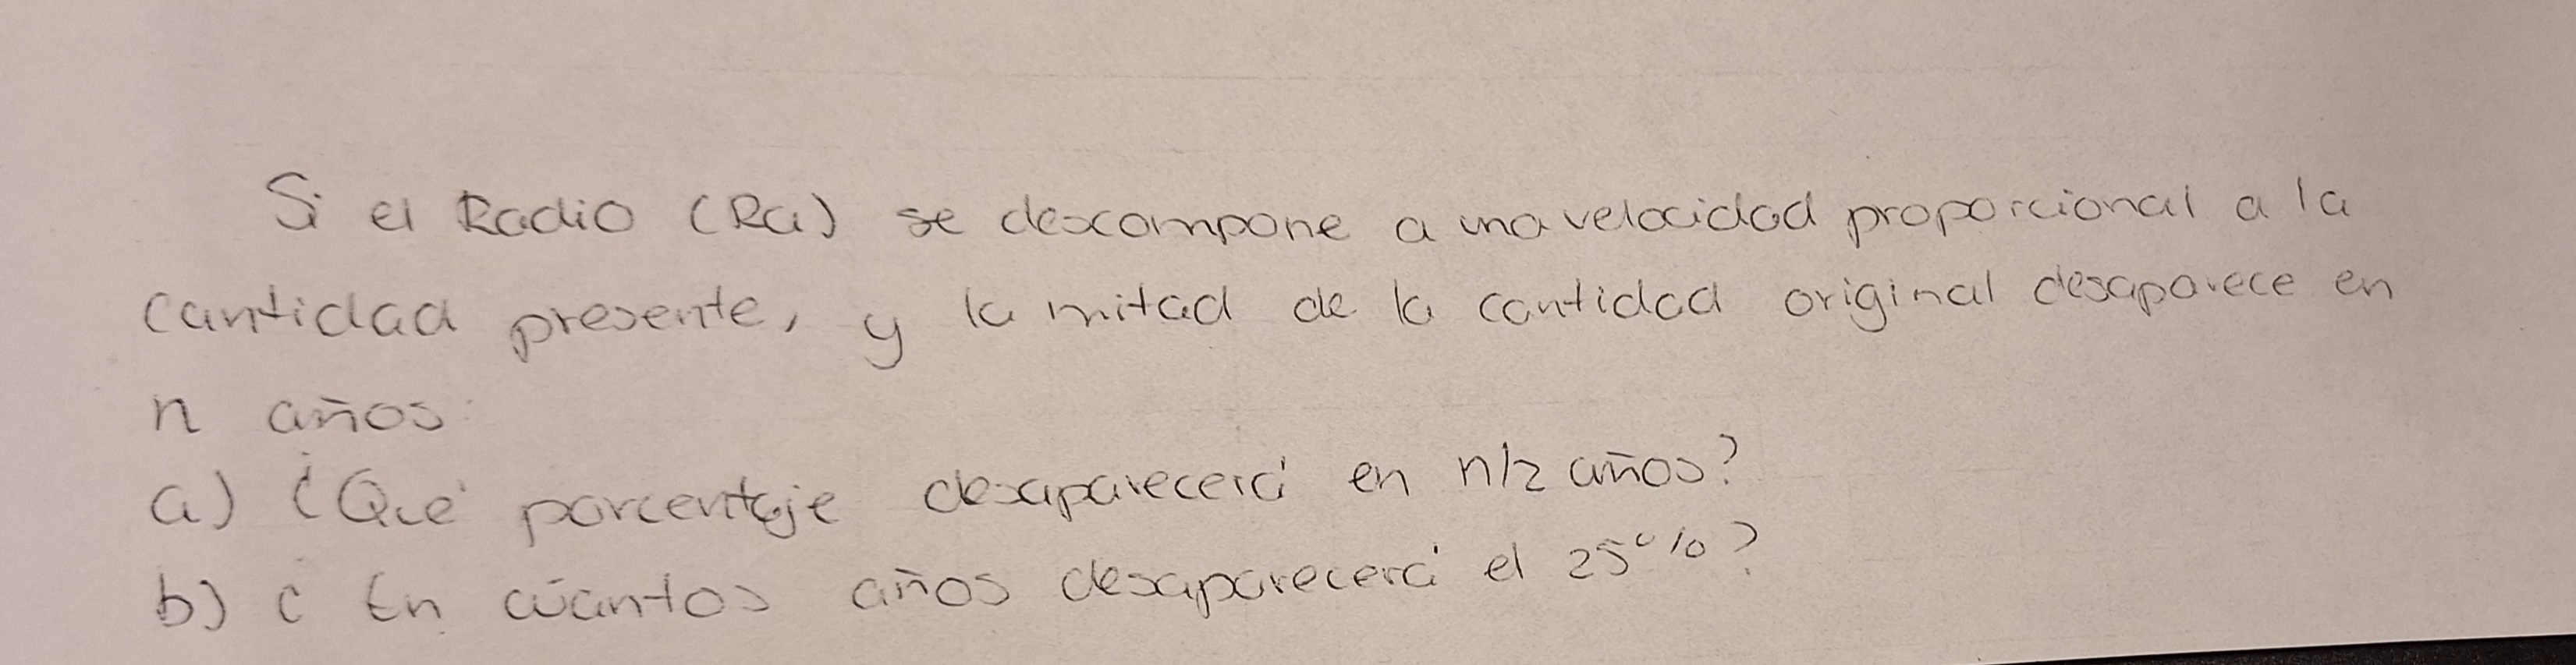 Si el Radio (Ra) se descompone a una velocidad proporcional a la
cantidad presente, y la mitad de la cantidad original desaparece en
n años:
a) ¿Qué porcentaje desaparecerá en n/2 años?
b) ¿En cuántos años desaparecerá el 25%?